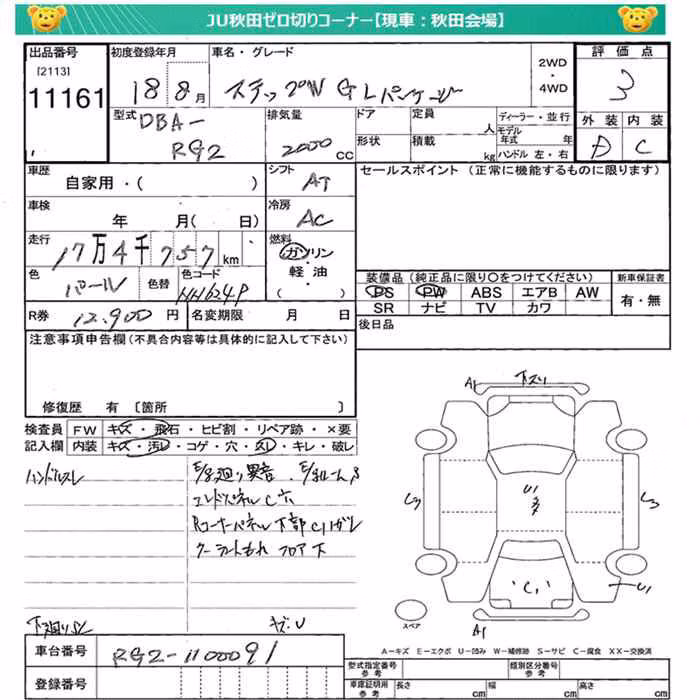 JU秋田ゼロ切りコーナー【現車：秋田会場】
出品番号 初度登録年月 車名・グレード 2WD・4WD 評価点
[2113]
11161 18 8月 ステップW GLパッケージ 3
型式 DBA-RG2 排気量 2000 cc ドア 定員 人 ディーラー・並行 外装 内装
形状 積載 kg モデル年式 年 ハンドル 左・右 D C
車歴 自家用・( ) シフト AT セールスポイント（正常に機能するものに限ります）
車検 年 月( 日) 冷房 AC
走行 17万4千757km 燃料 ガソリン・軽油・( )
色 パール 色替 色コード NH624P
装備品（純正品に限り○をつけてください） 新車保証書
PS PW ABS エアB AW 有・無
SR ナビ TV カワ
R券 12,900円 名変期限 月 日 後日品
注意事項申告欄（不具合内容等は具体的に記入して下さい）
修復歴 有 〔箇所 〕
検査員 FW キズ・飛石・ヒビ割・リペア跡・×要
記入欄 内装 キズ・汚レ・コゲ・穴・スレ・キレ・破レ
ハンドルスレ E/g廻り異音
コーナーパネル下部C
フロア下
下廻りS
A1 下スリ
U1
C1
U1
A1
スペア
A-キズ E-エクボ U-凹み W-補修跡 S-サビ C-腐食 XX-交換済
車台番号 RG2-1100091
登録番号
型式指定番号 参考 類別区分番号 参考
車庫証明用 参考 長さ cm 幅 cm 高さ cm